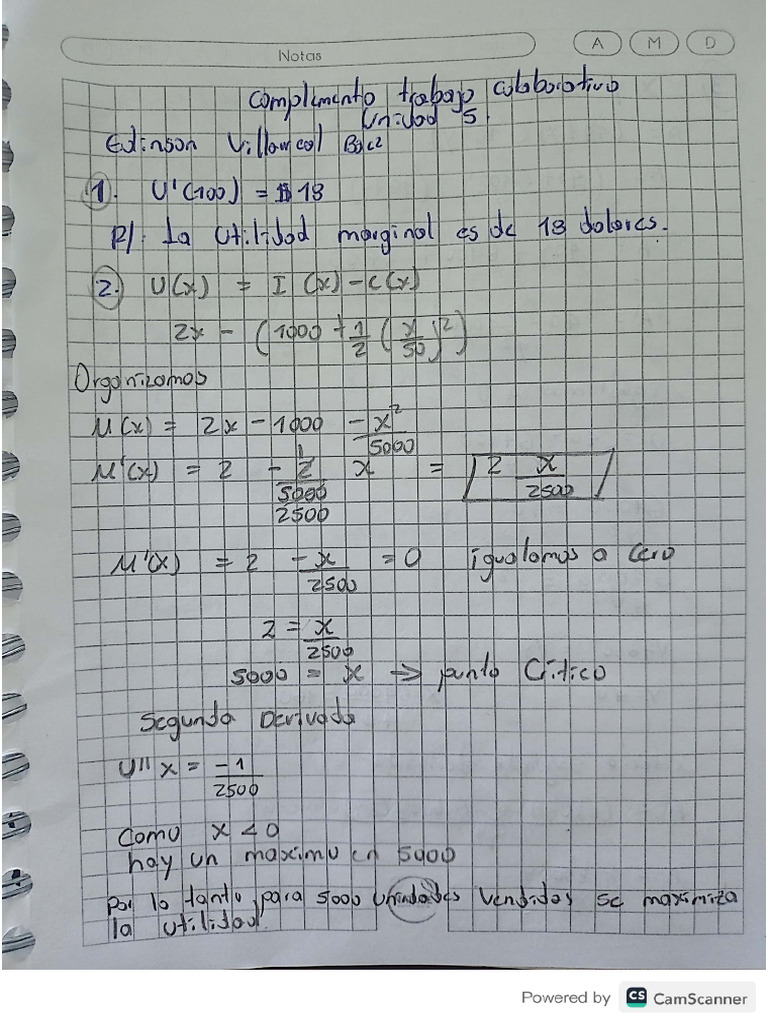 Notas
A M D
Complemento trabajo colaborativo
Unidad 5
Edinson Villarreal Baez
1. U'(100) = $18
R/. La utilidad marginal es de 18 dolares.
2. U(x) = I (x) - C(x)
2x - (1000 + 1/2 (x/50)²)
Organizamos
M(x) = 2x - 1000 - x²/5000
M'(x) = 2 - 2/5000 x = 2 x/2500
1
2500
M'(x) = 2 - x/2500 = 0 igualamos a cero
2 = x/2500
5000 = x → punto Critico
Segunda Derivada
U'' x = -1/2500
Como x < 0
hay un maximo en 5000
Por lo tanto para 5000 unindades vendidas se maximiza
la utilidad.
Powered by CS CamScanner